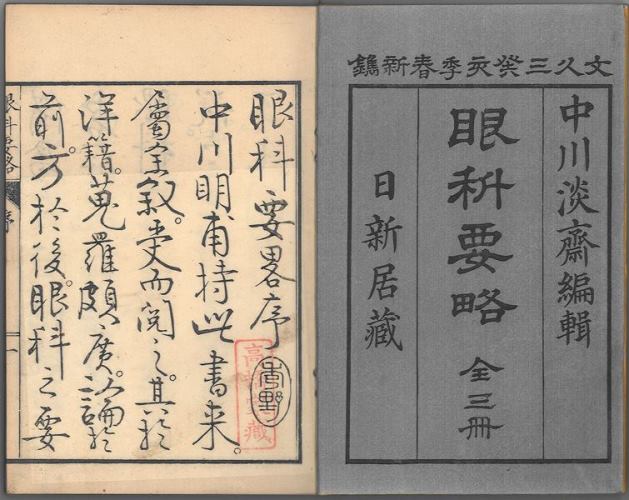 文久三癸亥季春新鐫
中川淡齋編輯
眼科要略 全三冊
日新居藏
眼科要畧序
中川明甫持此書来。
屬余叙。受而閲之。其於
洋籍。蒐羅頗廣。以論於
前。方於後。眼科之要
眼科要略 序 一